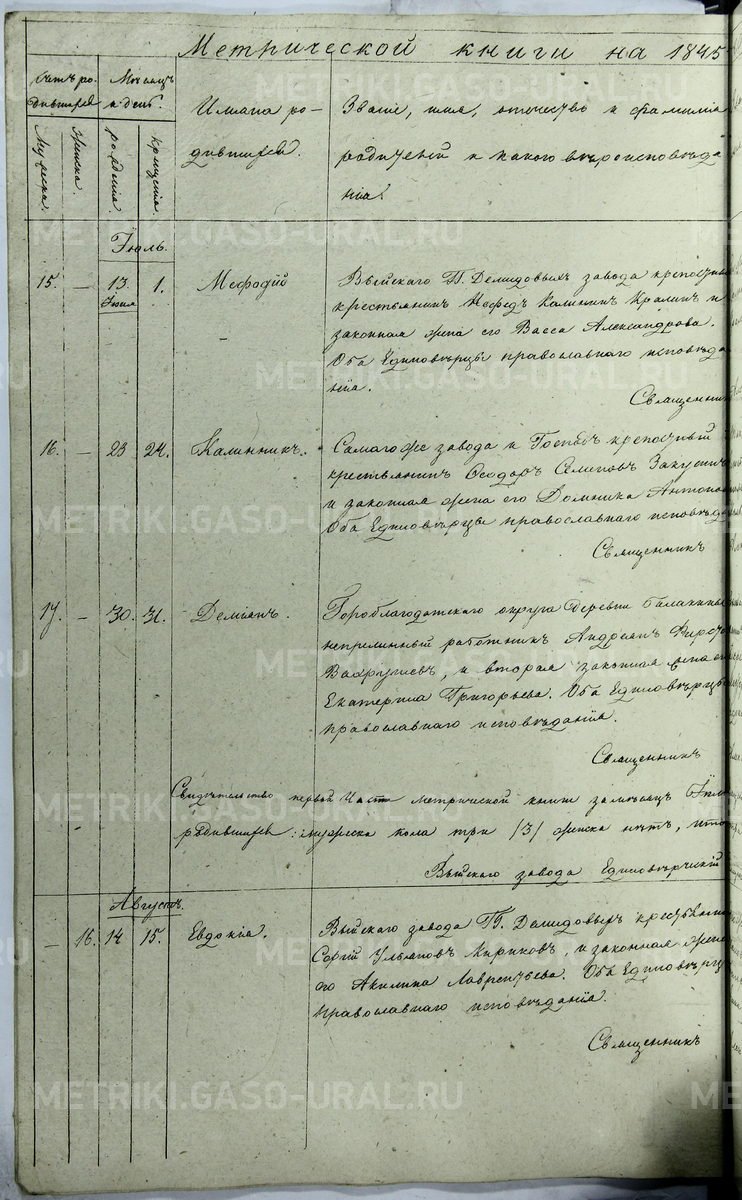 Метрической книги на 1845
Счетъ ро-
дившихся
Мѣсяцъ
и день.
Имяна ро-
дившихся.
Званіе, имя, отечество и фамилія
родителей и какого вѣроисповѣда
нія.
Мужеска.
Женска.
рожденія.
крещенія.
Іюль.
15. — 13 Іюня 1. Мефодій
Выйскаго Г.г. Демидовыхъ завода крепостный
крестьянинъ Нефедъ Калининъ и
законная жена его Васса Александрова.
Оба Единовѣрцы православнаго исповѣда
нія.
Священник
16. — 23 24. Калинникъ.
Самагоже завода и Госпо́дъ крепостный
крестьянинъ Ѳеодоръ Семеновъ
и законная жена его Домника Антоно
Оба Единовѣрцы православнаго исповѣда
Священникъ
17. — 30. 31. Деміанъ.
Гороблагодатскаго округа Деревни Балакиной
непремѣнный работникъ Андреянъ
Вахрушевъ, и вторая законная жена его
Екатерина Григорьева. Оба Единовѣрцы
православнаго исповѣданія.
Священникъ
Свидѣтельство первой части метрической книги за мѣсяцъ Іюль
родившихся: мужеска пола три /3/ женска нѣтъ, итого
Выйскаго завода Единовѣрческій
Августъ.
— 16. 14 15. Евдокія.
Выйскаго завода Г.г. Демидовыхъ крестьянинъ
Сергій Ульяновъ Кириковъ, и законная жена
его Акилина Лаврентьева. Оба Единовѣрцы
православнаго исповѣданія.
Священникъ
METRIKI.GASO-URAL.RU